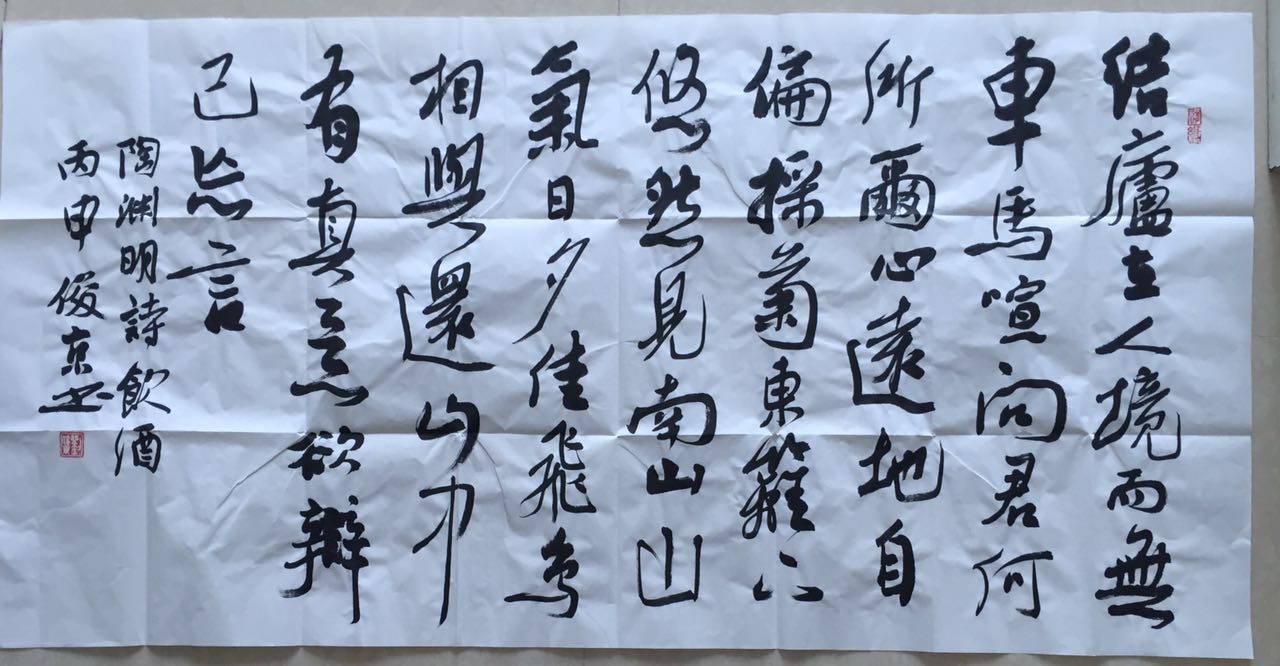 結廬在人境而無
車馬喧問君何
能爾心遠地自
偏採菊東籬下
悠然見南山山
氣日夕佳飛鳥
相與還此中
有真意欲辯
已忘言
陶淵明詩飲酒
丙申俊京书